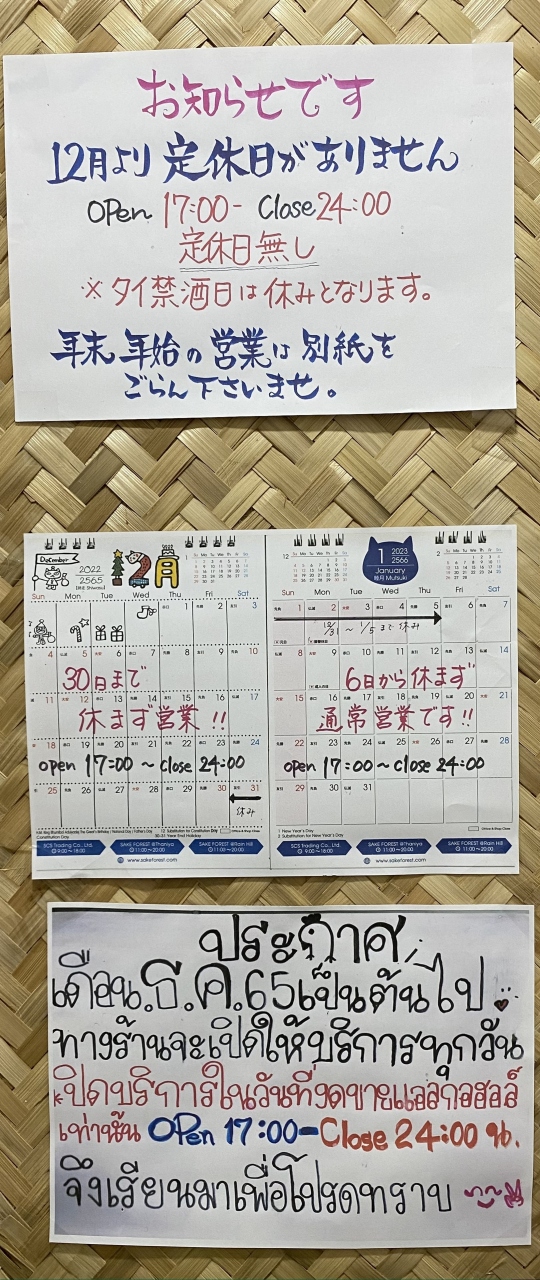 お知らせです
12月より 定休日がありません
OPen 17:00- Close 24:00
定休日無し
※ タイ禁酒日は休みとなります。
年末年始の営業は別紙を
ごらん下さいませ。
DeCember
2022
2565
12月
Sun Mon Tue Wed Thu Fri Sat
1 2 3
4 5 6 7 8 9 10
30日まで
11 12 13 14 15 16 17
休まず営業!!
18 19 20 21 22 23 24
open 17:00 ~ close 24:00
25 26 27 28 29 30 31
休み
SCS Trading Co., Ltd. SAKE FOREST @Thaniya SAKE FOREST @Rain Hill
9:00~18:00 11:00~20:00 11:00~20:00
www.sakeforest.com
1 2023
2566
January
睦月 Mutsuki
Sun Mon Tue Wed Thu Fri Sat
1 2 3 4 5 6 7
12/31 ~ 1/5 まで 休み
8 9 10 11 12 13 14
6日から休まず
15 16 17 18 19 20 21
通常営業です!!
22 23 24 25 26 27 28
open 17:00 ~ close 24:00
29 30 31
1 New Year's Day
2 Substitution for New Year's Day
Office & Shop Close
SCS Trading Co., Ltd. SAKE FOREST @Thaniya SAKE FOREST @Rain Hill
9:00~18:00 11:00~20:00 11:00~20:00
www.sakeforest.com
ประกาศ
เดือน.ธ.ค.65เป็นต้นไป
ทางร้านจะเปิดให้บริการทุกวัน
ปิดบริการในวันที่งดขายแอลกอฮอล์
เท่านั้น OPen 17:00-Close 24:00 น.
จึงเรียนมาเพื่อโปรดทราบ